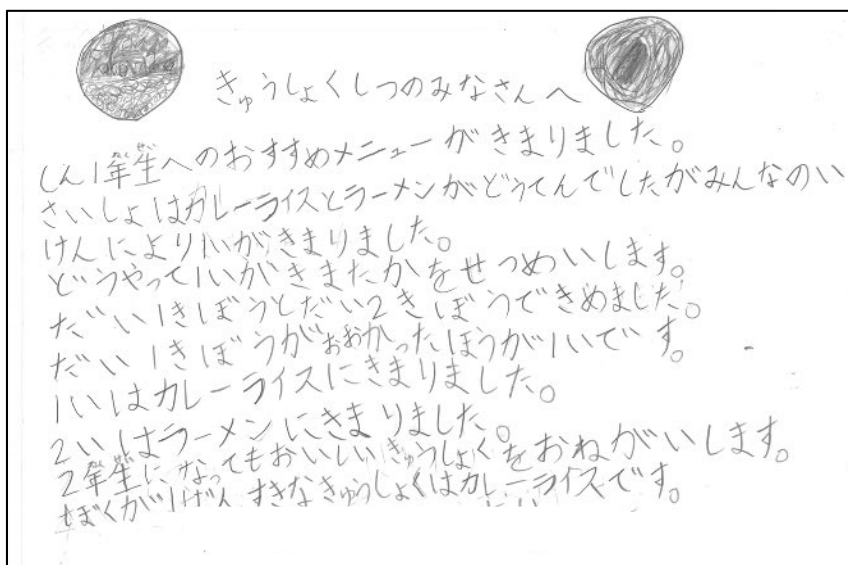 きゅうしょくしつのみなさんへ
しん1年生へのおすすめメニューがきまりました。
さいしょはカレーライスとラーメンがどうてんでしたがみんなのい
けんにより1いがきまりました。
どうやって1いがきまたかをせつめいします。
だい1きぼうとだい2きぼうできめました。
だい1きぼうがおおかったほうが1いです。
1いはカレーライスにきまりました。
2いはラーメンにきまりました。
2年生になってもおいしいきゅうしょくをおねがいします。
ぼくが1ばんすきなきゅうしょくはカレーライスです。